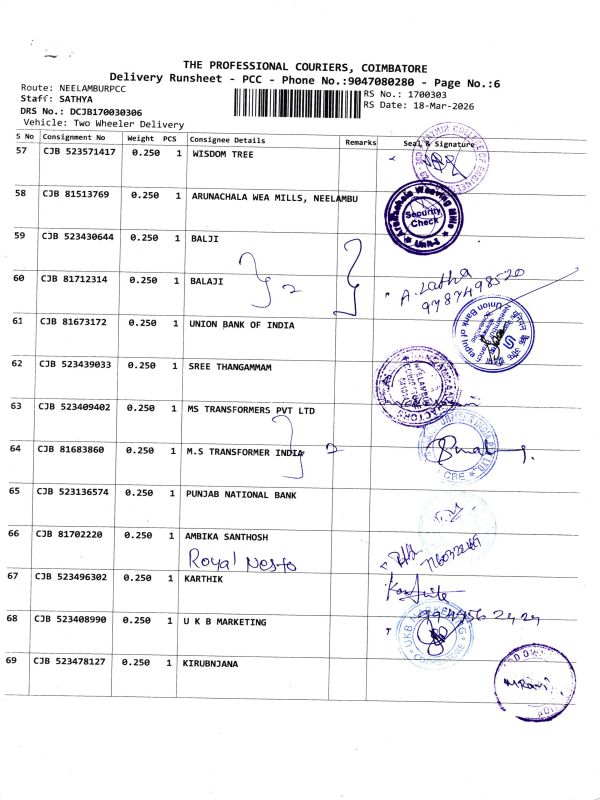 THE PROFESSIONAL COURIERS, COIMBATORE
Delivery Runsheet - PCC - Phone No.:9047080280 - Page No.:6
Route: NEELAMBURPCC
RS No.: 1700303
Staff: SATHYA
RS Date: 18-Mar-2026
DRS No.: DCJB170030306
Vehicle: Two Wheeler Delivery
S No Consignment No Weight PCS Consignee Details Remarks Seal & Signature
57 CJB 523571417 0.250 1 WISDOM TREE
58 CJB 81513769 0.250 1 ARUNACHALA WEA MILLS, NEELAMBU
Security Check
Unit-I
59 CJB 523430644 0.250 1 BALJI
60 CJB 81712314 0.250 1 BALAJI
2
A. Latha
9787498520
61 CJB 81673172 0.250 1 UNION BANK OF INDIA
Union Bank of India
62 CJB 523439033 0.250 1 SREE THANGAMMAM
63 CJB 523409402 0.250 1 MS TRANSFORMERS PVT LTD
64 CJB 81683860 0.250 1 M.S TRANSFORMER INDIA
2
CBE
65 CJB 523136574 0.250 1 PUNJAB NATIONAL BANK
66 CJB 81702220 0.250 1 AMBIKA SANTHOSH
Royal Nesto
67 CJB 523496302 0.250 1 KARTHIK
68 CJB 523408990 0.250 1 U K B MARKETING
UKB MARKETING
COIMBATORE
69 CJB 523478127 0.250 1 KIRUBNJANA
M.Ravi